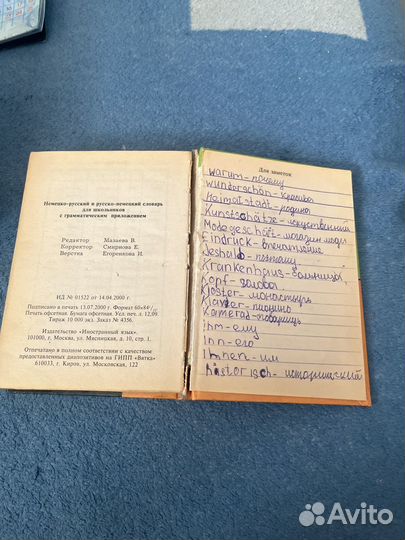 Немецко-русский и русско-немецкий словарь
для школьников
с грамматическим приложением
Редактор Мазаева В.
Корректор Смирнова Е.
Верстка Егоренкова И.
ИД № 01522 от 14.04.2000 г.
Подписано в печать 13.07.2000 г. Формат 60×84 1/
Печать офсетная. Бумага офсетная. Усл. печ. л. 12,09
Тираж 10 000 экз. Заказ № 4356.
Издательство «Иностранный язык»
101000, г. Москва, ул. Мясницкая, д. 10, стр. 1.
Отпечатано в полном соответствии с качеством
предоставленных диапозитивов на ГИПП «Вятка»
610033, г. Киров, ул. Московская, 122
Для заметок
warum - почему
wunderschön - красивы
Heimatstadt - родина
Kunstschätze -
Modegeschäft - магазин моды
Eindruck - впечатление
deshalb - поэтому
Krankenhaus - больница
Kopf - голова
Kloster - монастырь
Klavier - пианино
Kamerad - товарищ
ihm - ему
inn - его
ihnen - им
historisch - исторический
Avito